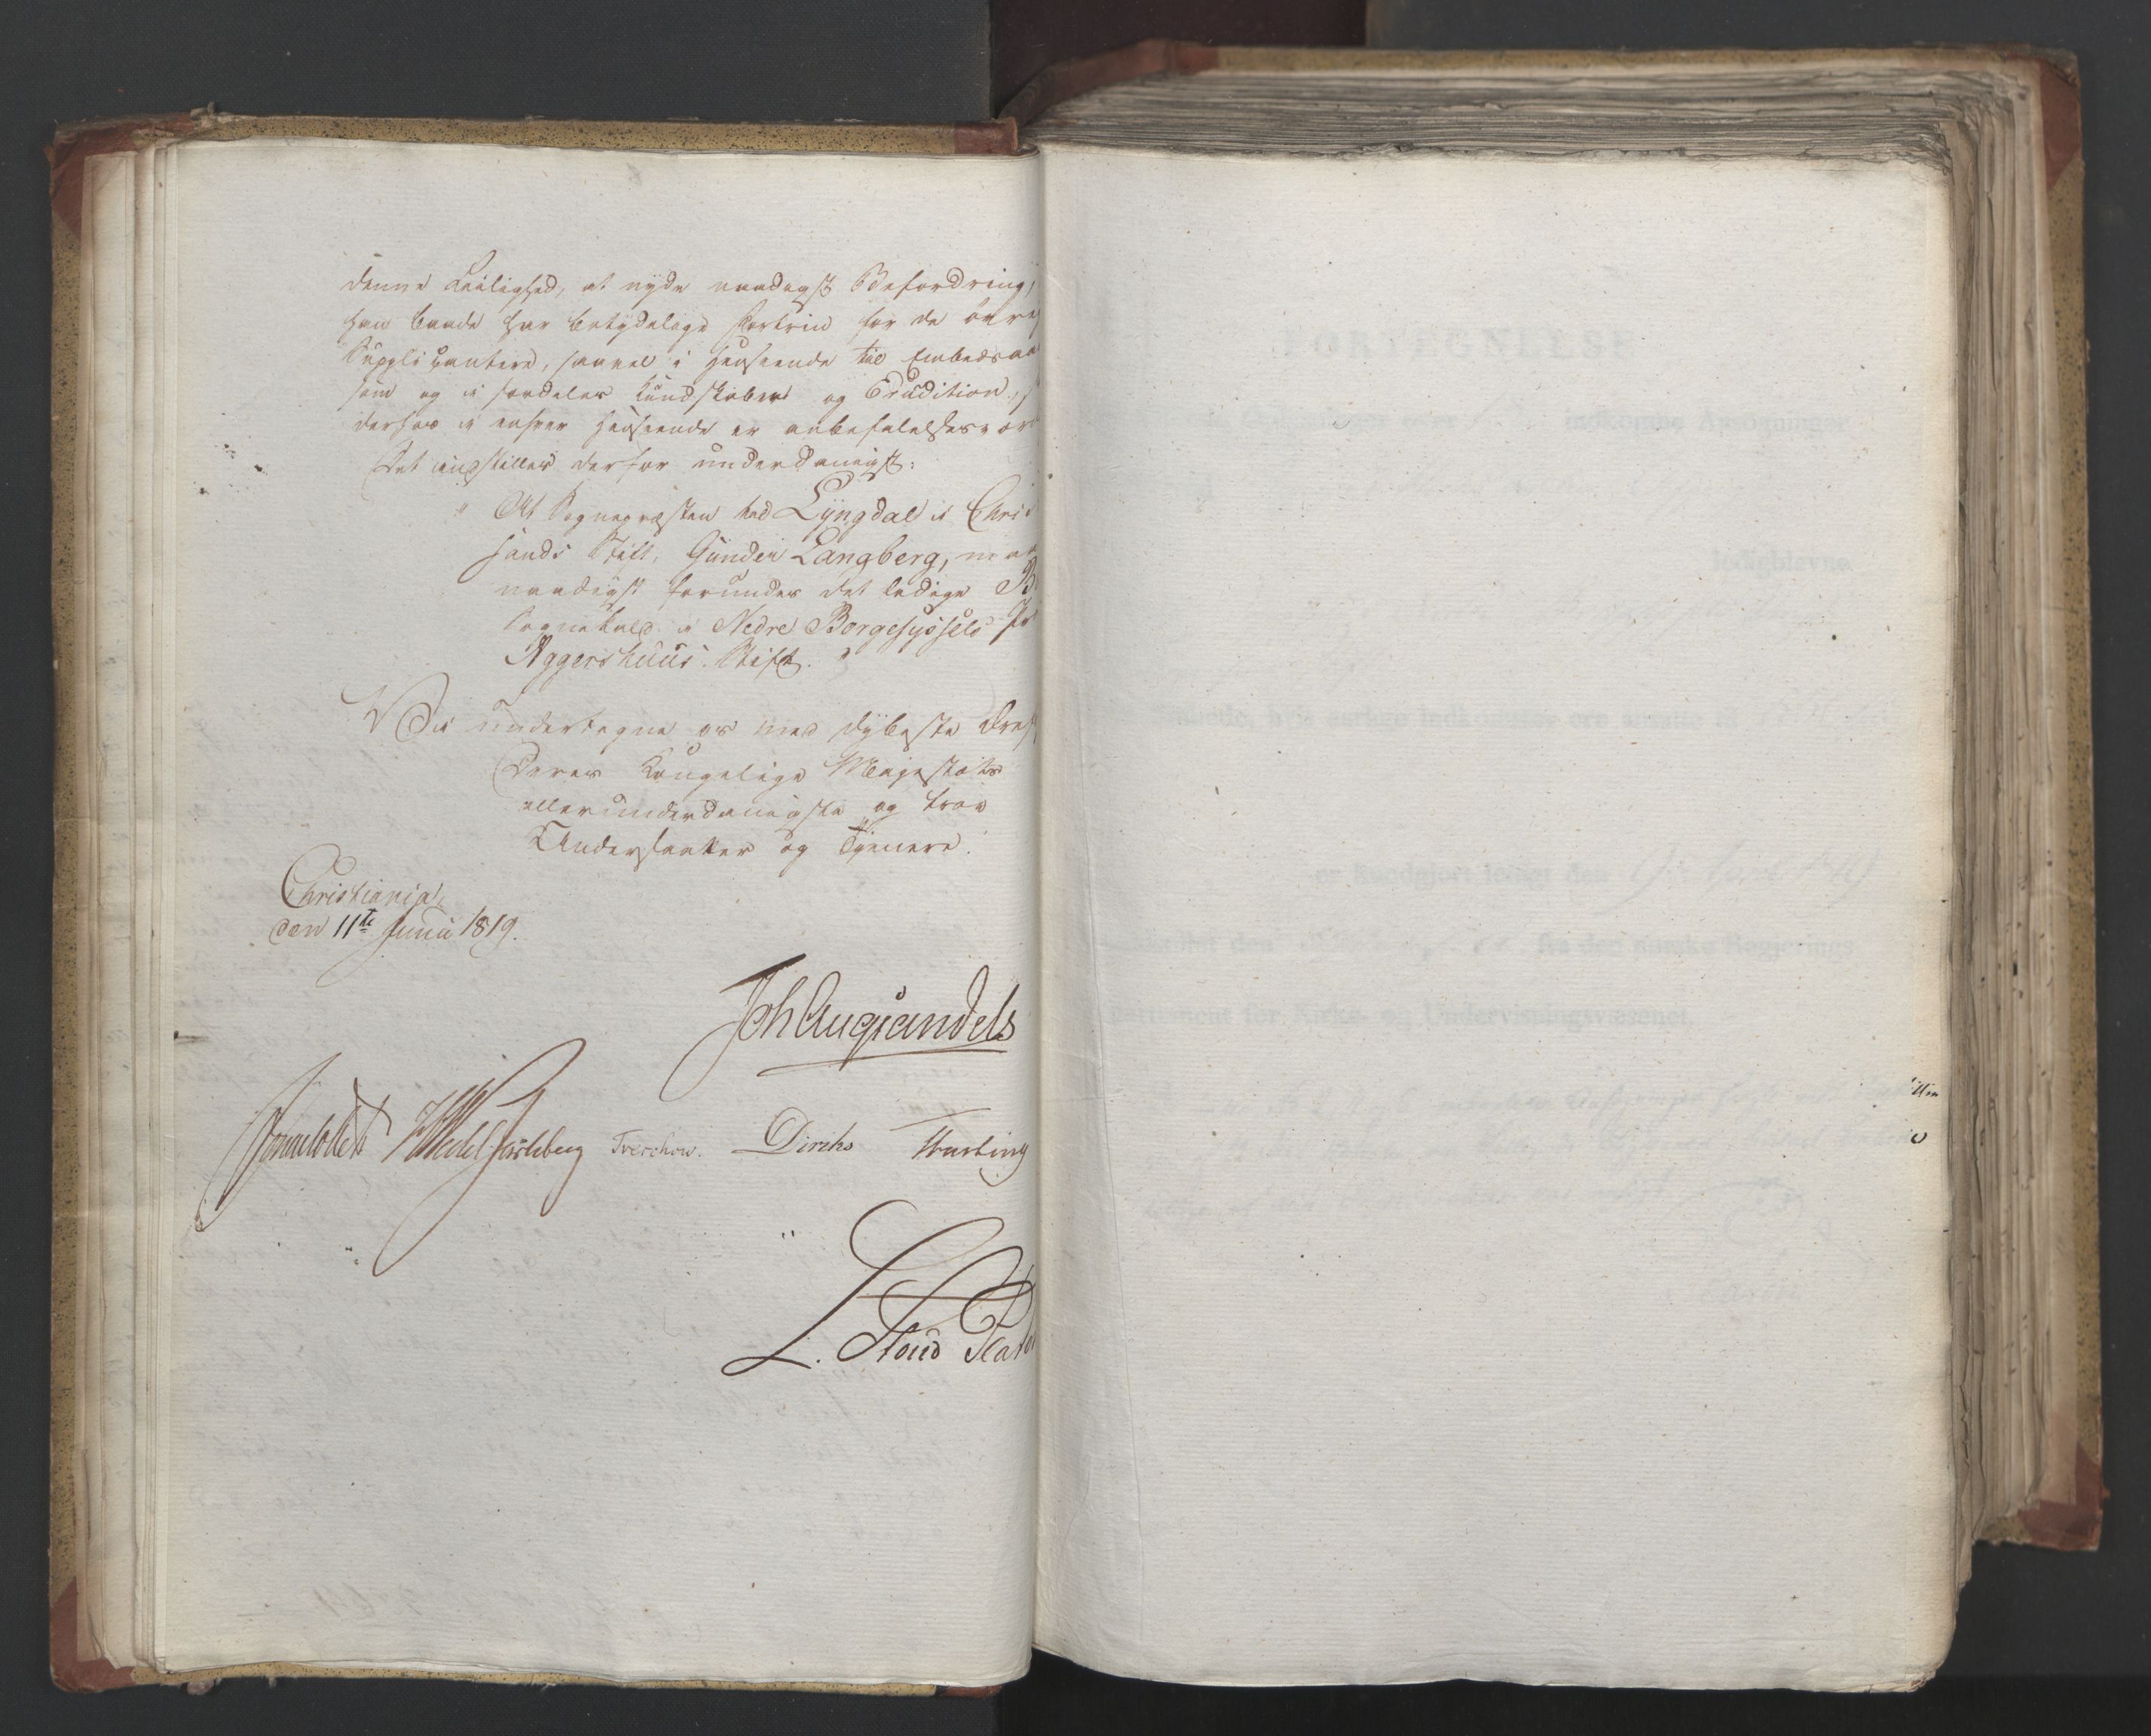 denne Leilighed, at nyde naadigst Befordring,
han baade har betydelige Fortrin for de øvrig
Supplicantere, saavel i Henseende til Embedsaa
som og i særdeles Kundskaber og Erudition,
derhos i enhver Henseende er anbefalelsesvær
Det indstilles derfor underdanigst:
" At Sognepræsten ved Lyngdal i Chri
sands Stift, Gunder Langberg, maa
naadigst forundes det ledige B
Sognekald i Nedre Borgesyssels Pr
Aggershuus Stift. "
Vi undertegne os med dybeste Æref
Deres Kongelige Majestæts
allerunderdanigste og troe
Undersaatter og Tjenere.
Christiania,
den 11te Junii 1819.
Joh Aug Sandels
Sommerhielm HWedel Jarlsberg Treschow. Diriks Hasting
L. Stoud Plato
FORTEGNELSE
indkomne Ansøgninger
ledigblevne
er kundgjort ledigt den 9de 1819
fra den norske Regjerings
Departement for Kirke- og Undervisningsvæsenet.